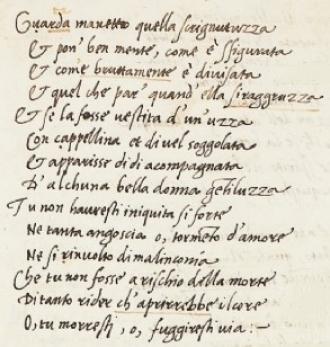 Guarda manetto quella scrignutuzza
Et pon' ben mente, come è sfigurata
Et come bruttamente è divisata
Et quel che par' quand' ella si raggruzza
Et se la fosse vestita d'un' uzza
Con cappellina et di vel soggolata
Et apparisse di dì acompagnata
D'alchuna bella donna gentiluzza
Tu non havresti iniquita si forte
Ne tanta angoscia o, tormēto d'amore
Ne si rinvolto di malinconia
Che tu non fosse a rischio della morte
Di tanto rider ch'aprirrebbe il core
O, tu morresti, o, fuggiresti via :-